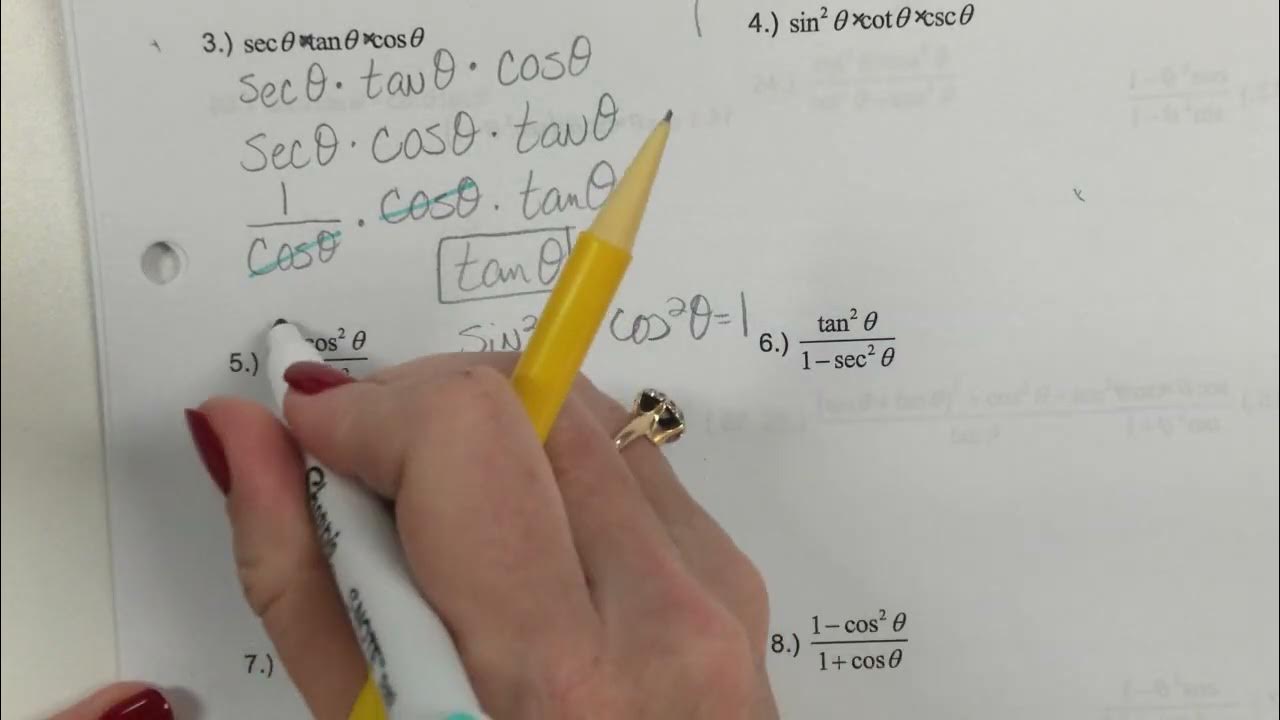 3.) secθ×tanθ×cosθ
secθ · tanθ · cosθ
secθ · cosθ · tanθ
1/cosθ · cosθ · tanθ
tanθ
4.) sin² θ×cotθ×cscθ
5.) cos² θ
sin² cos²θ=1
6.) tan² θ
1−sec² θ
7.)
8.) 1−cos² θ
1+cosθ
Sharpie